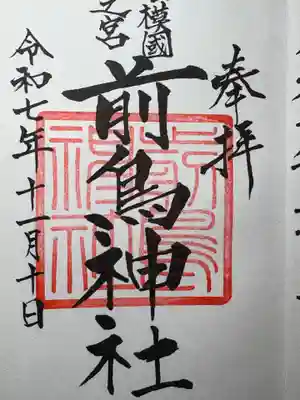 奉拝
模國
之宮
前鳥神社
令和七年十一月十日
前鳥神社